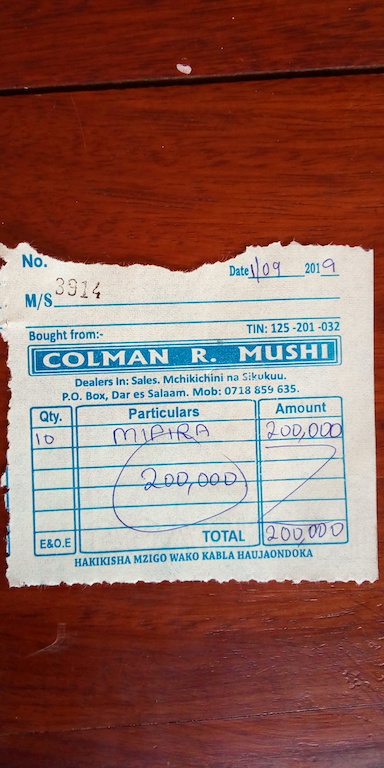 No.
Date 1/09 2019
3914
M/S
Bought from:- TIN: 125 -201 -032
COLMAN R. MUSHI
Dealers In: Sales. Mchikichini na Sikukuu.
P.O. Box, Dar es Salaam. Mob: 0718 859 635.
Qty. Particulars Amount
10 MIPIRA 200,000
200,000
E&O.E TOTAL 200,000
HAKIKISHA MZIGO WAKO KABLA HAUJAONDOKA